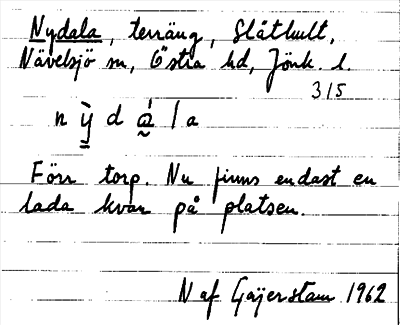 Nydala, terräng, Slåthult,
Nävelsjö sn, Östra hd, Jönk. l.
315
n ỳ d a l a
Förr torp. Nu finns endast en
lada kvar på platsen.
N af Geijerstam 1962